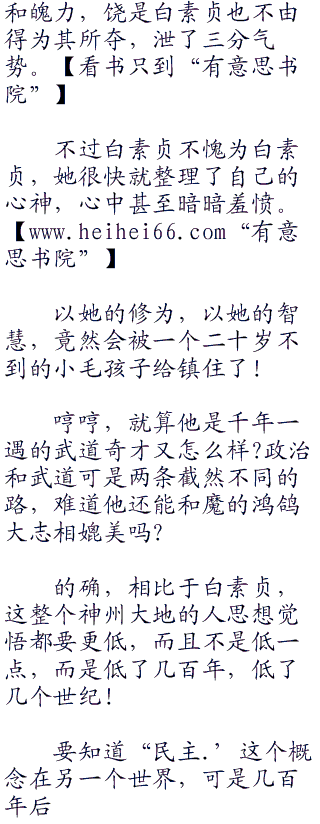 和魄力，饶是白素贞也不由
得为其所夺，泄了三分气
势。【看书只到“有意思书
院”】
不过白素贞不愧为白素
贞，她很快就整理了自己的
心神，心中甚至暗暗羞愤。
【www.heihei66.com“有意
思书院”】
以她的修为，以她的智
慧，竟然会被一个二十岁不
到的小毛孩子给镇住了！
哼哼，就算他是千年一
遇的武道奇才又怎么样?政治
和武道可是两条截然不同的
路，难道他还能和魔的鸿鸽
大志相媲美吗?
的确，相比于白素贞，
这整个神州大地的人思想觉
悟都要更低，而且不是低一
点，而是低了几百年，低了
几个世纪！
要知道“民主.’这个概
念在另一个世界，可是几百
年后